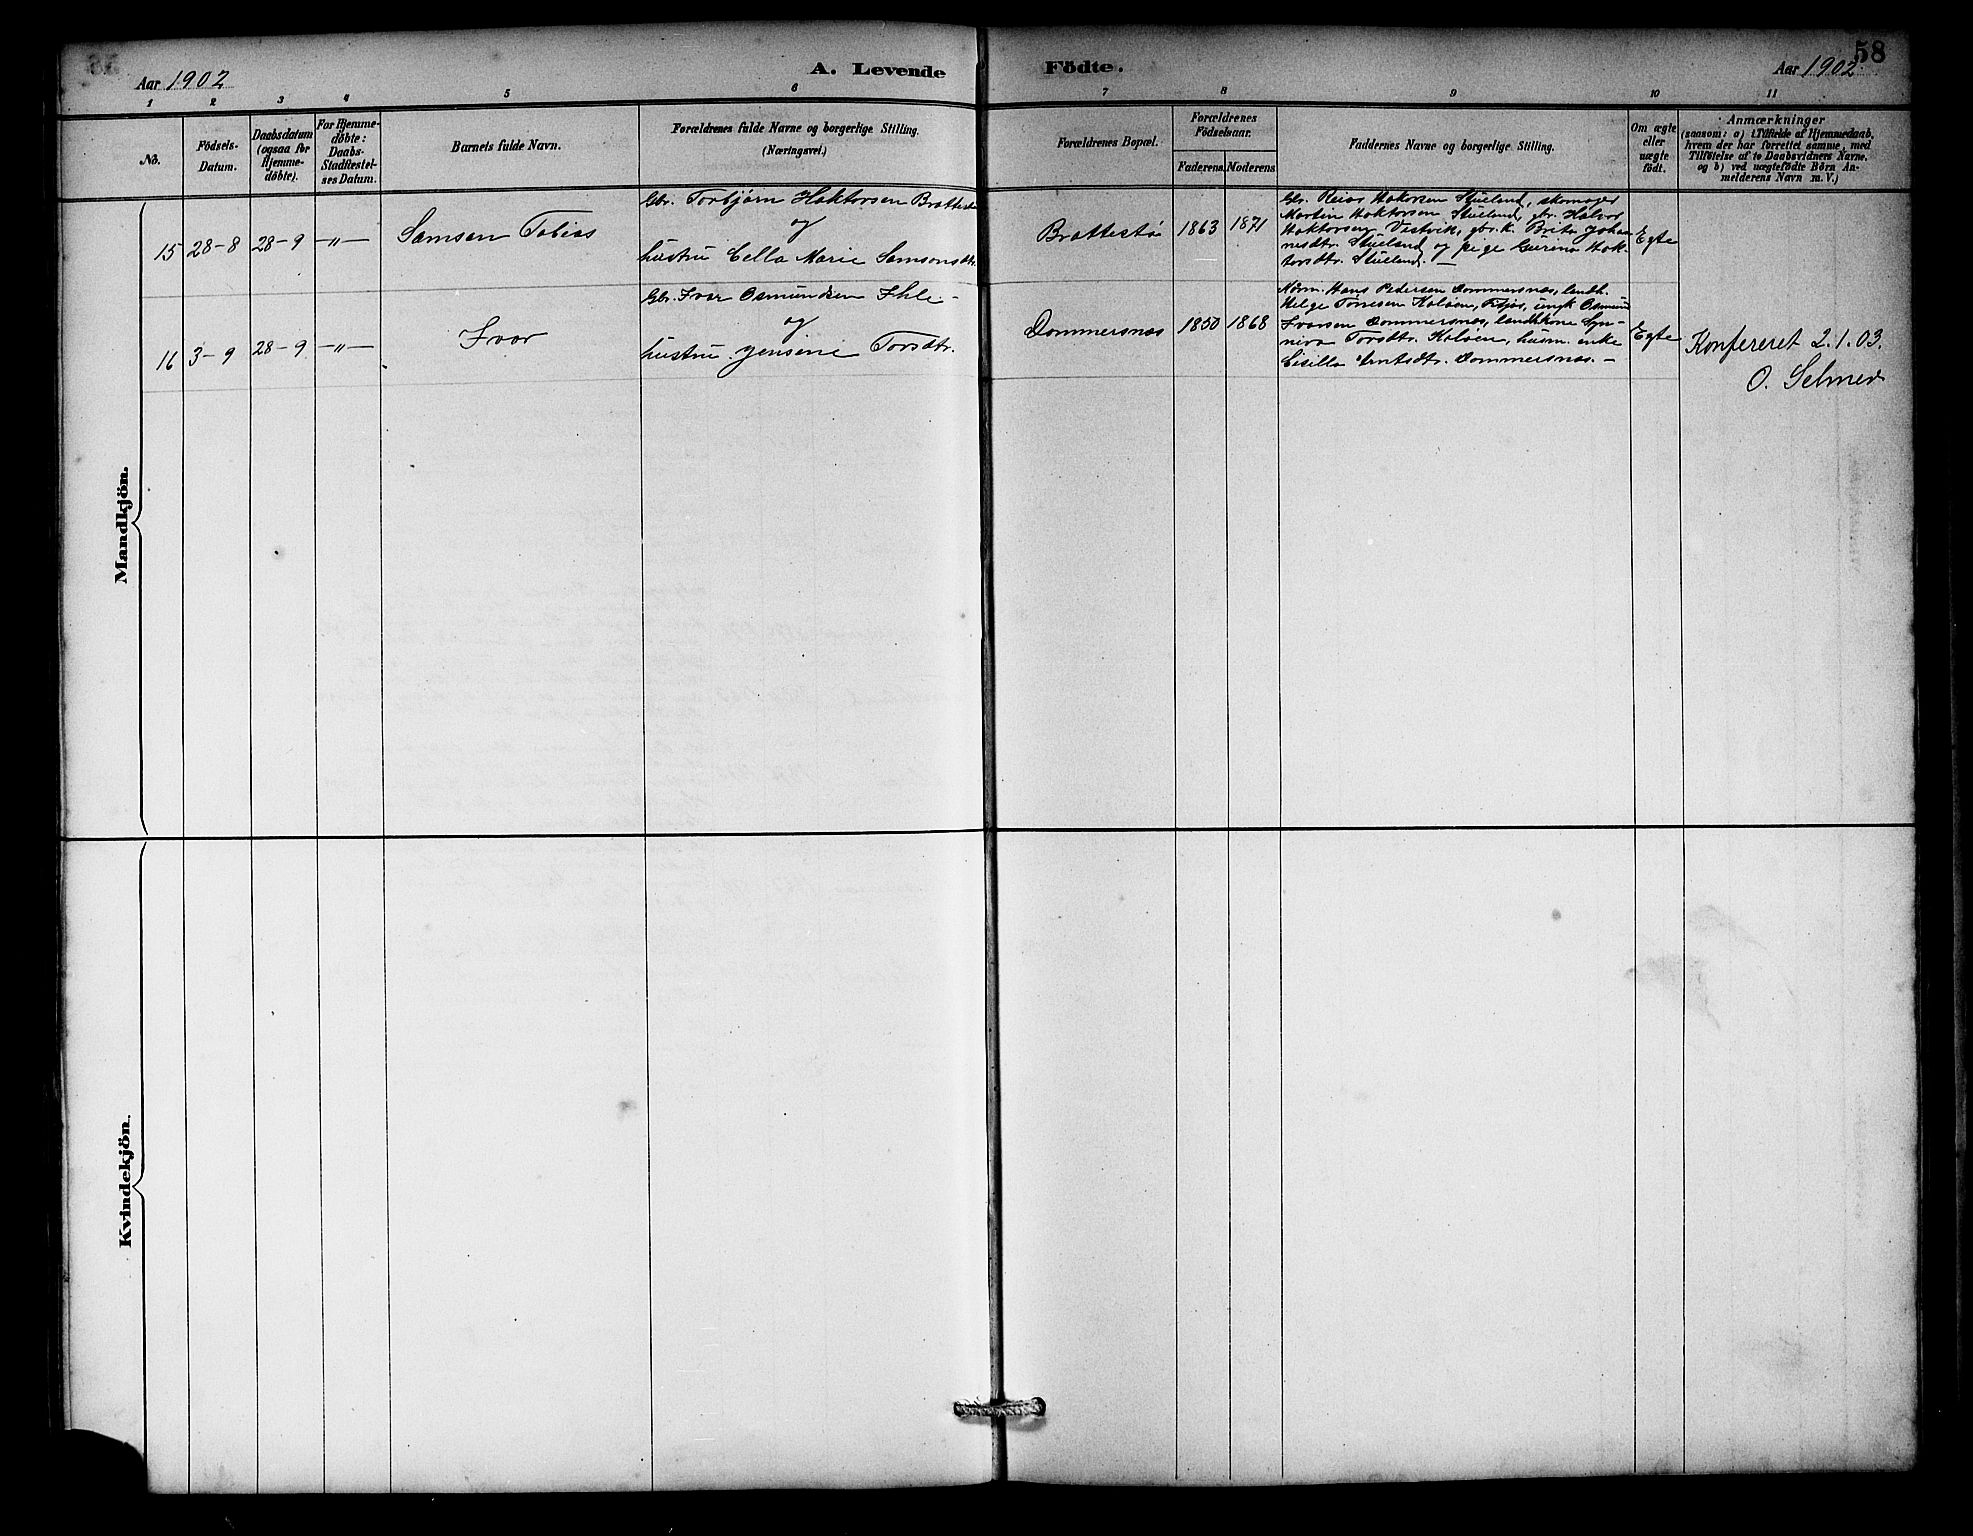 58
Aar 1902
A. Levende Födte.
Aar 1902
1 2 3 4 5 6 7 8 9 10 11
No.
Födsels-
Datum.
Daabsdatum
(ogsaa for
Hjemme-
döbte).
For Hjemme-
döbte:
Daabs-
Stadfæstel-
ses Datum.
Barnets fulde Navn.
Forældrenes fulde Navne og borgerlige Stilling.
(Næringsvei.)
Forældrenes Bopæl.
Forældrenes
Födselsaar.
Faderens. Moderens
Faddernes Navne og borgerlige Stilling.
Om ægte
eller
uægte
födt.
Anmærkninger
(saasom: a) i Tilfælde af Hjemmedaab,
hvem der har forrettet samme, med
Tilföielse af to Daabsvidners Navne,
og b) ved uægtefödte Börn An-
melderens Navn m. V.)
Mandkjön.
15 28-8 28-9 -"- Samson Tobias
Gbr. Torbjørn Haktorsen Brattestø
og
hustru Cella Marie Samsonsdtr.
Brattestø 1863 1871
Gbr. Reias Haktorsen Stueland, skomager
Martin Haktorsen Stueland, gbr. Halvor
Haktorsen Vestvik, gbr.k. Brita Johan-
nesdtr. Stueland og pige Gurina Hak-
torsdtr. Stueland. -
Egte
16 3-9 28-9 -"- Ivar
Gbr. Ivar Osmundsen Ihle -
og
hustru Jensine Torsdtr.
Dommersnæs 1850 1868
Hans Pedersen Dommersnæs, landh.
Helge Tørresen Kaløen, Fitjar, ungk Osmund
Ivarsen Dommersnæs, landhkone Syn-
neva Torsdtr. Kaløen, husm. enke
Cisilla Arntsdtr. Dommersnæs. -
Egte
Konfereret 2.1.03.
O. Selmer
Kvindekjön.